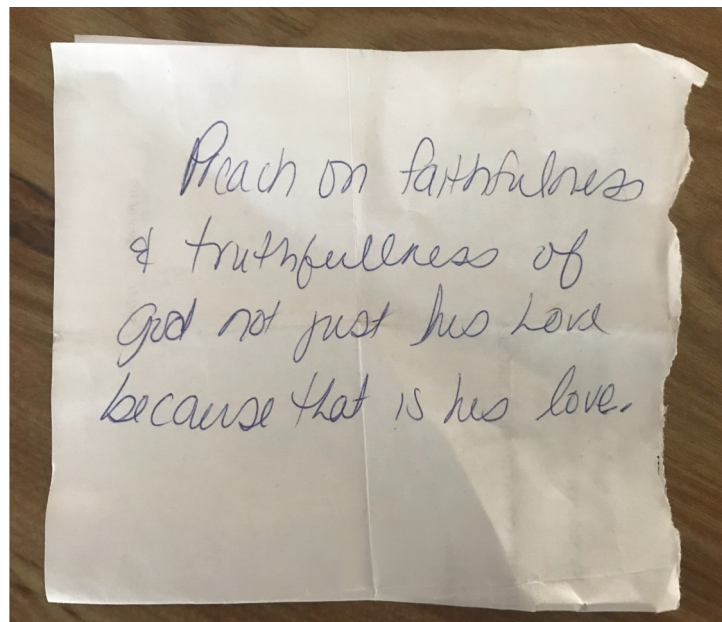 Preach on faithfulness
& truthfullness of
God not just his Love
because that is his love.